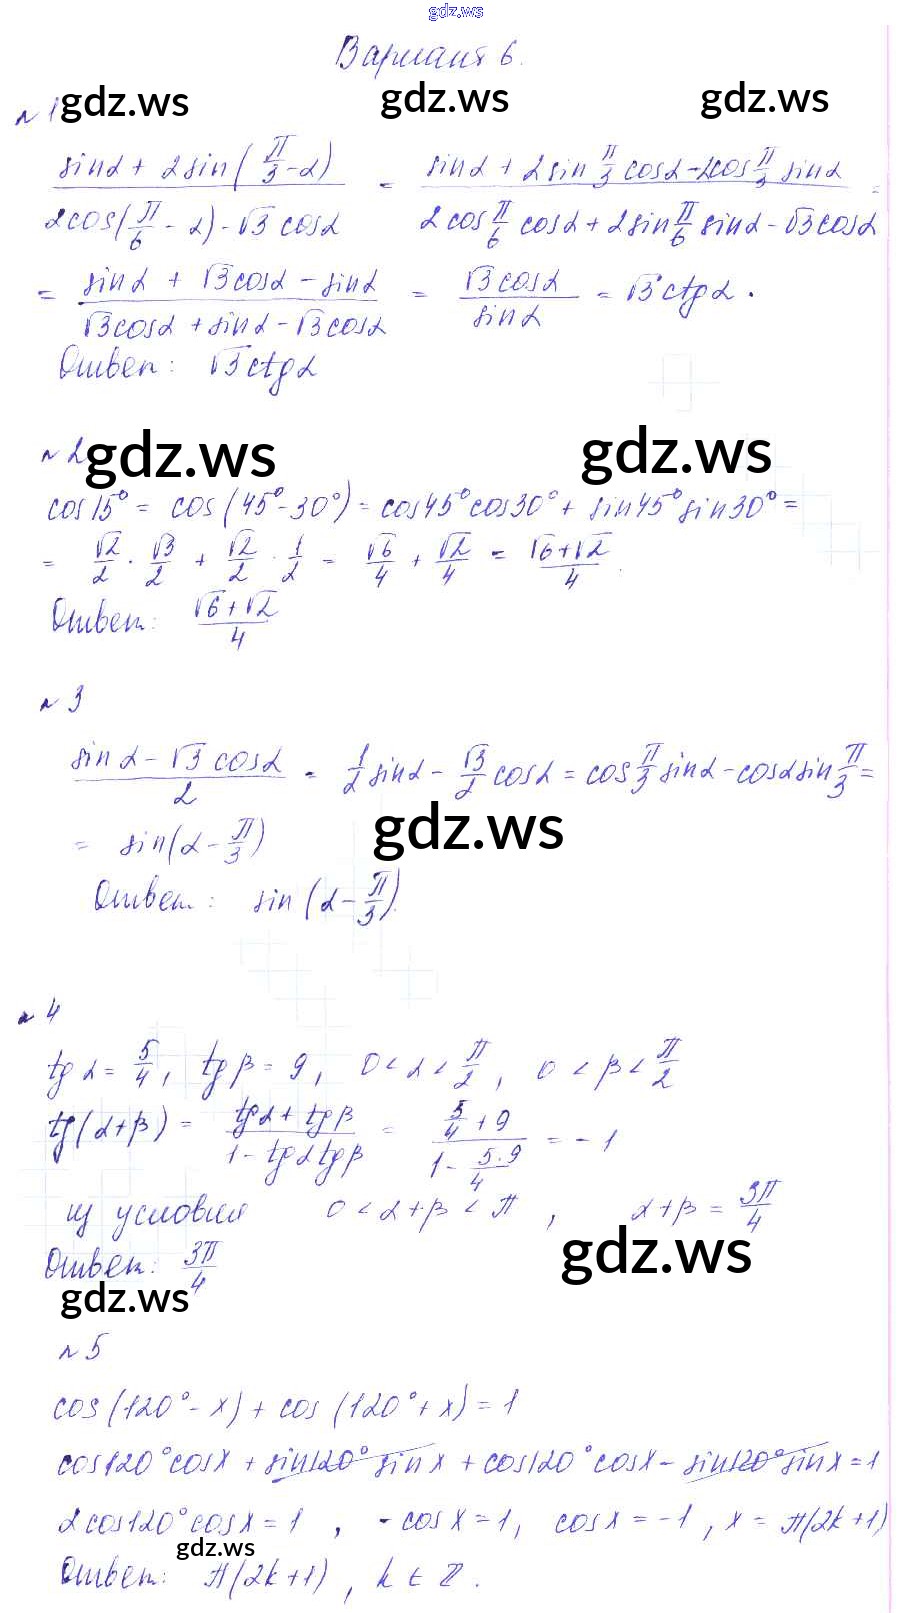 gdz.ws
Вариант 6.
gdz.ws gdz.ws gdz.ws
№1
(sinα + 2sin(π/3 - α))/(2cos(π/6 - α) - √3 cosα) = (sinα + 2sin π/3 cosα - 2cos π/3 sinα)/(2cos π/6 cosα + 2sin π/6 sinα - √3cosα) =
= (sinα + √3cosα - sinα)/(√3cosα + sinα - √3cosα) = (√3cosα)/(sinα) = √3ctgα.
Ответ: √3ctgα
№2 gdz.ws gdz.ws
cos15° = cos(45°-30°) = cos45°cos30° + sin45°sin30° =
= √2/2 · √3/2 + √2/2 · 1/2 = √6/4 + √2/4 = (√6+√2)/4.
Ответ: (√6+√2)/4
№3
(sinα - √3cosα)/2 = 1/2 sinα - √3/2 cosα = cos π/3 sinα - cosα sin π/3 =
= sin(α - π/3) gdz.ws
Ответ: sin(α - π/3).
№4
tgα = 5/4, tgβ = 9, 0 < α < π/2, 0 < β < π/2
tg(α+β) = (tgα + tgβ)/(1 - tgαtgβ) = (5/4 + 9)/(1 - 5·9/4) = -1
из условия 0 < α+β < π, α+β = 3π/4
Ответ: 3π/4 gdz.ws
gdz.ws
№5
cos(120°-x) + cos(120°+x) = 1
cos120°cosx + sin120° sinx + cos120°cosx - sin120°sinx = 1
2cos120°cosx = 1, -cosx = 1, cosx = -1, x = π(2k+1)
gdz.ws
Ответ: π(2k+1), k ∈ Z.